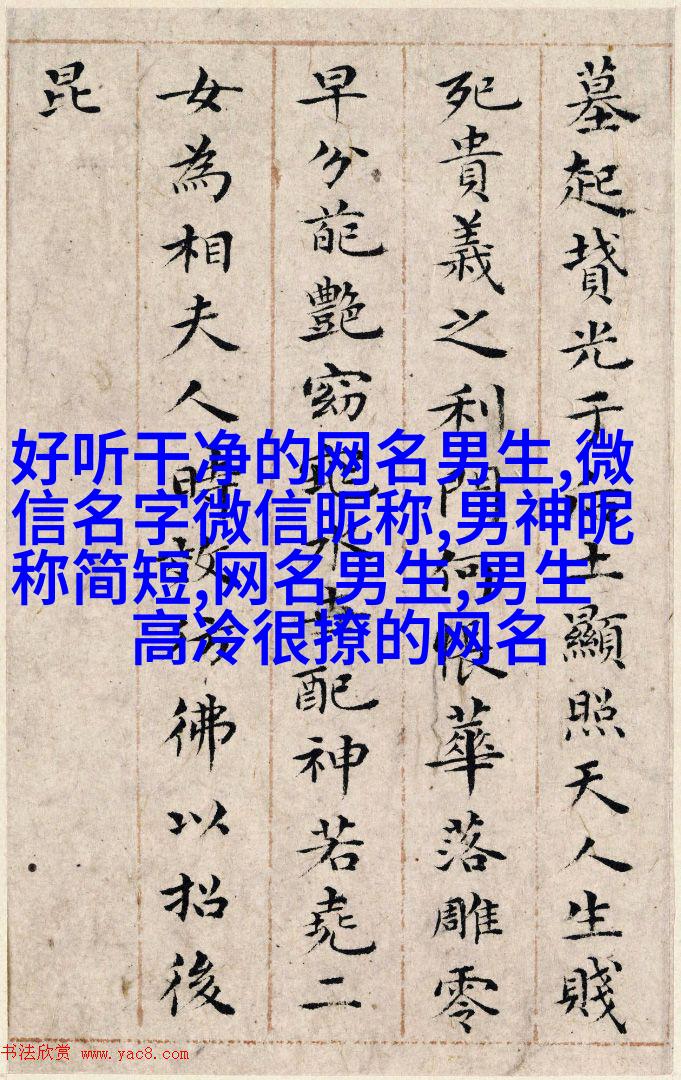 墓起墳光于土顯照天人生賤
死貴義之利門何悵華落雕零
早分葩艷窈配神若堯二
女為相夫人時彿以招後
昆
好听干净的网名男生,微
信名字微信昵称,男神昵
称简短,网名男生,男生
高冷很撩的网名
书法欣赏 www.yac8.com